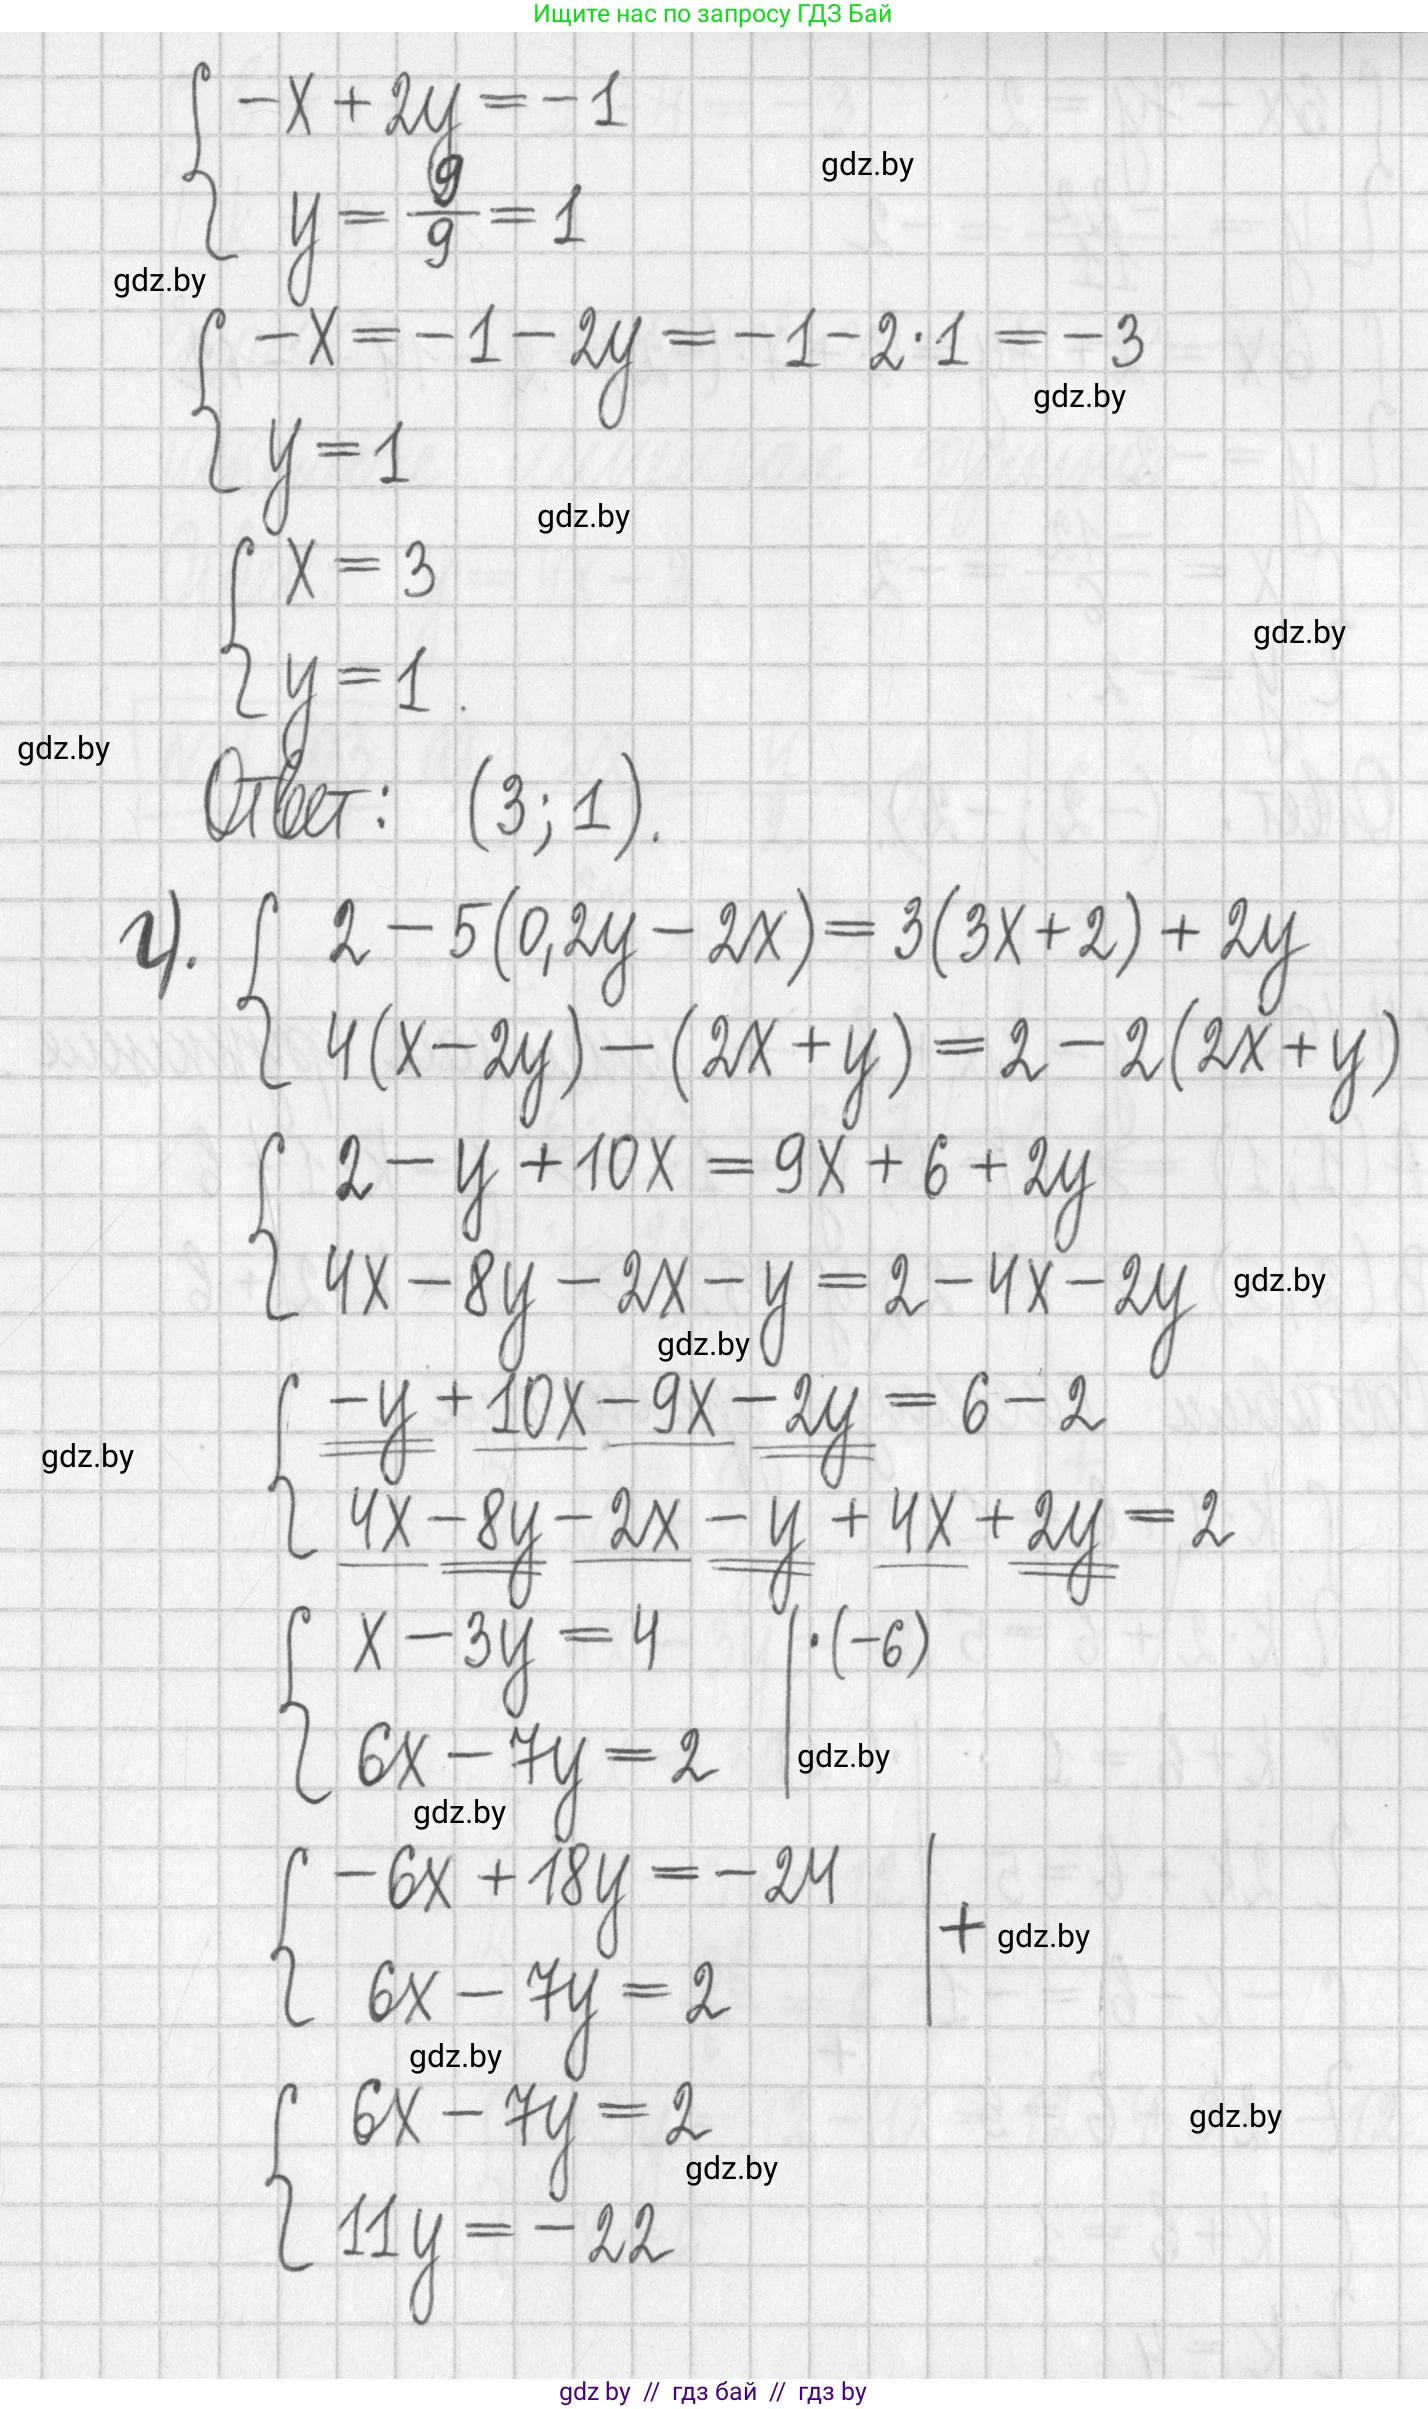 Ищите нас по запросу ГДЗ Бай
-x + 2y = -1
gdz.by
y = 9/9 = 1
gdz.by
-x = -1 - 2y = -1 - 2·1 = -3
gdz.by
y = 1
gdz.by
x = 3
gdz.by
y = 1.
gdz.by
Ответ: (3; 1).
г). 2 - 5(0,2y - 2x) = 3(3x + 2) + 2y
4(x - 2y) - (2x + y) = 2 - 2(2x + y)
2 - y + 10x = 9x + 6 + 2y
4x - 8y - 2x - y = 2 - 4x - 2y
gdz.by
gdz.by
-y + 10x - 9x - 2y = 6 - 2
gdz.by
4x - 8y - 2x - y + 4x + 2y = 2
x - 3y = 4 | ·(-6)
6x - 7y = 2
gdz.by
gdz.by
-6x + 18y = -24
+
gdz.by
6x - 7y = 2
gdz.by
6x - 7y = 2
gdz.by
gdz.by
11y = -22
gdz by // гдз бай // гдз by